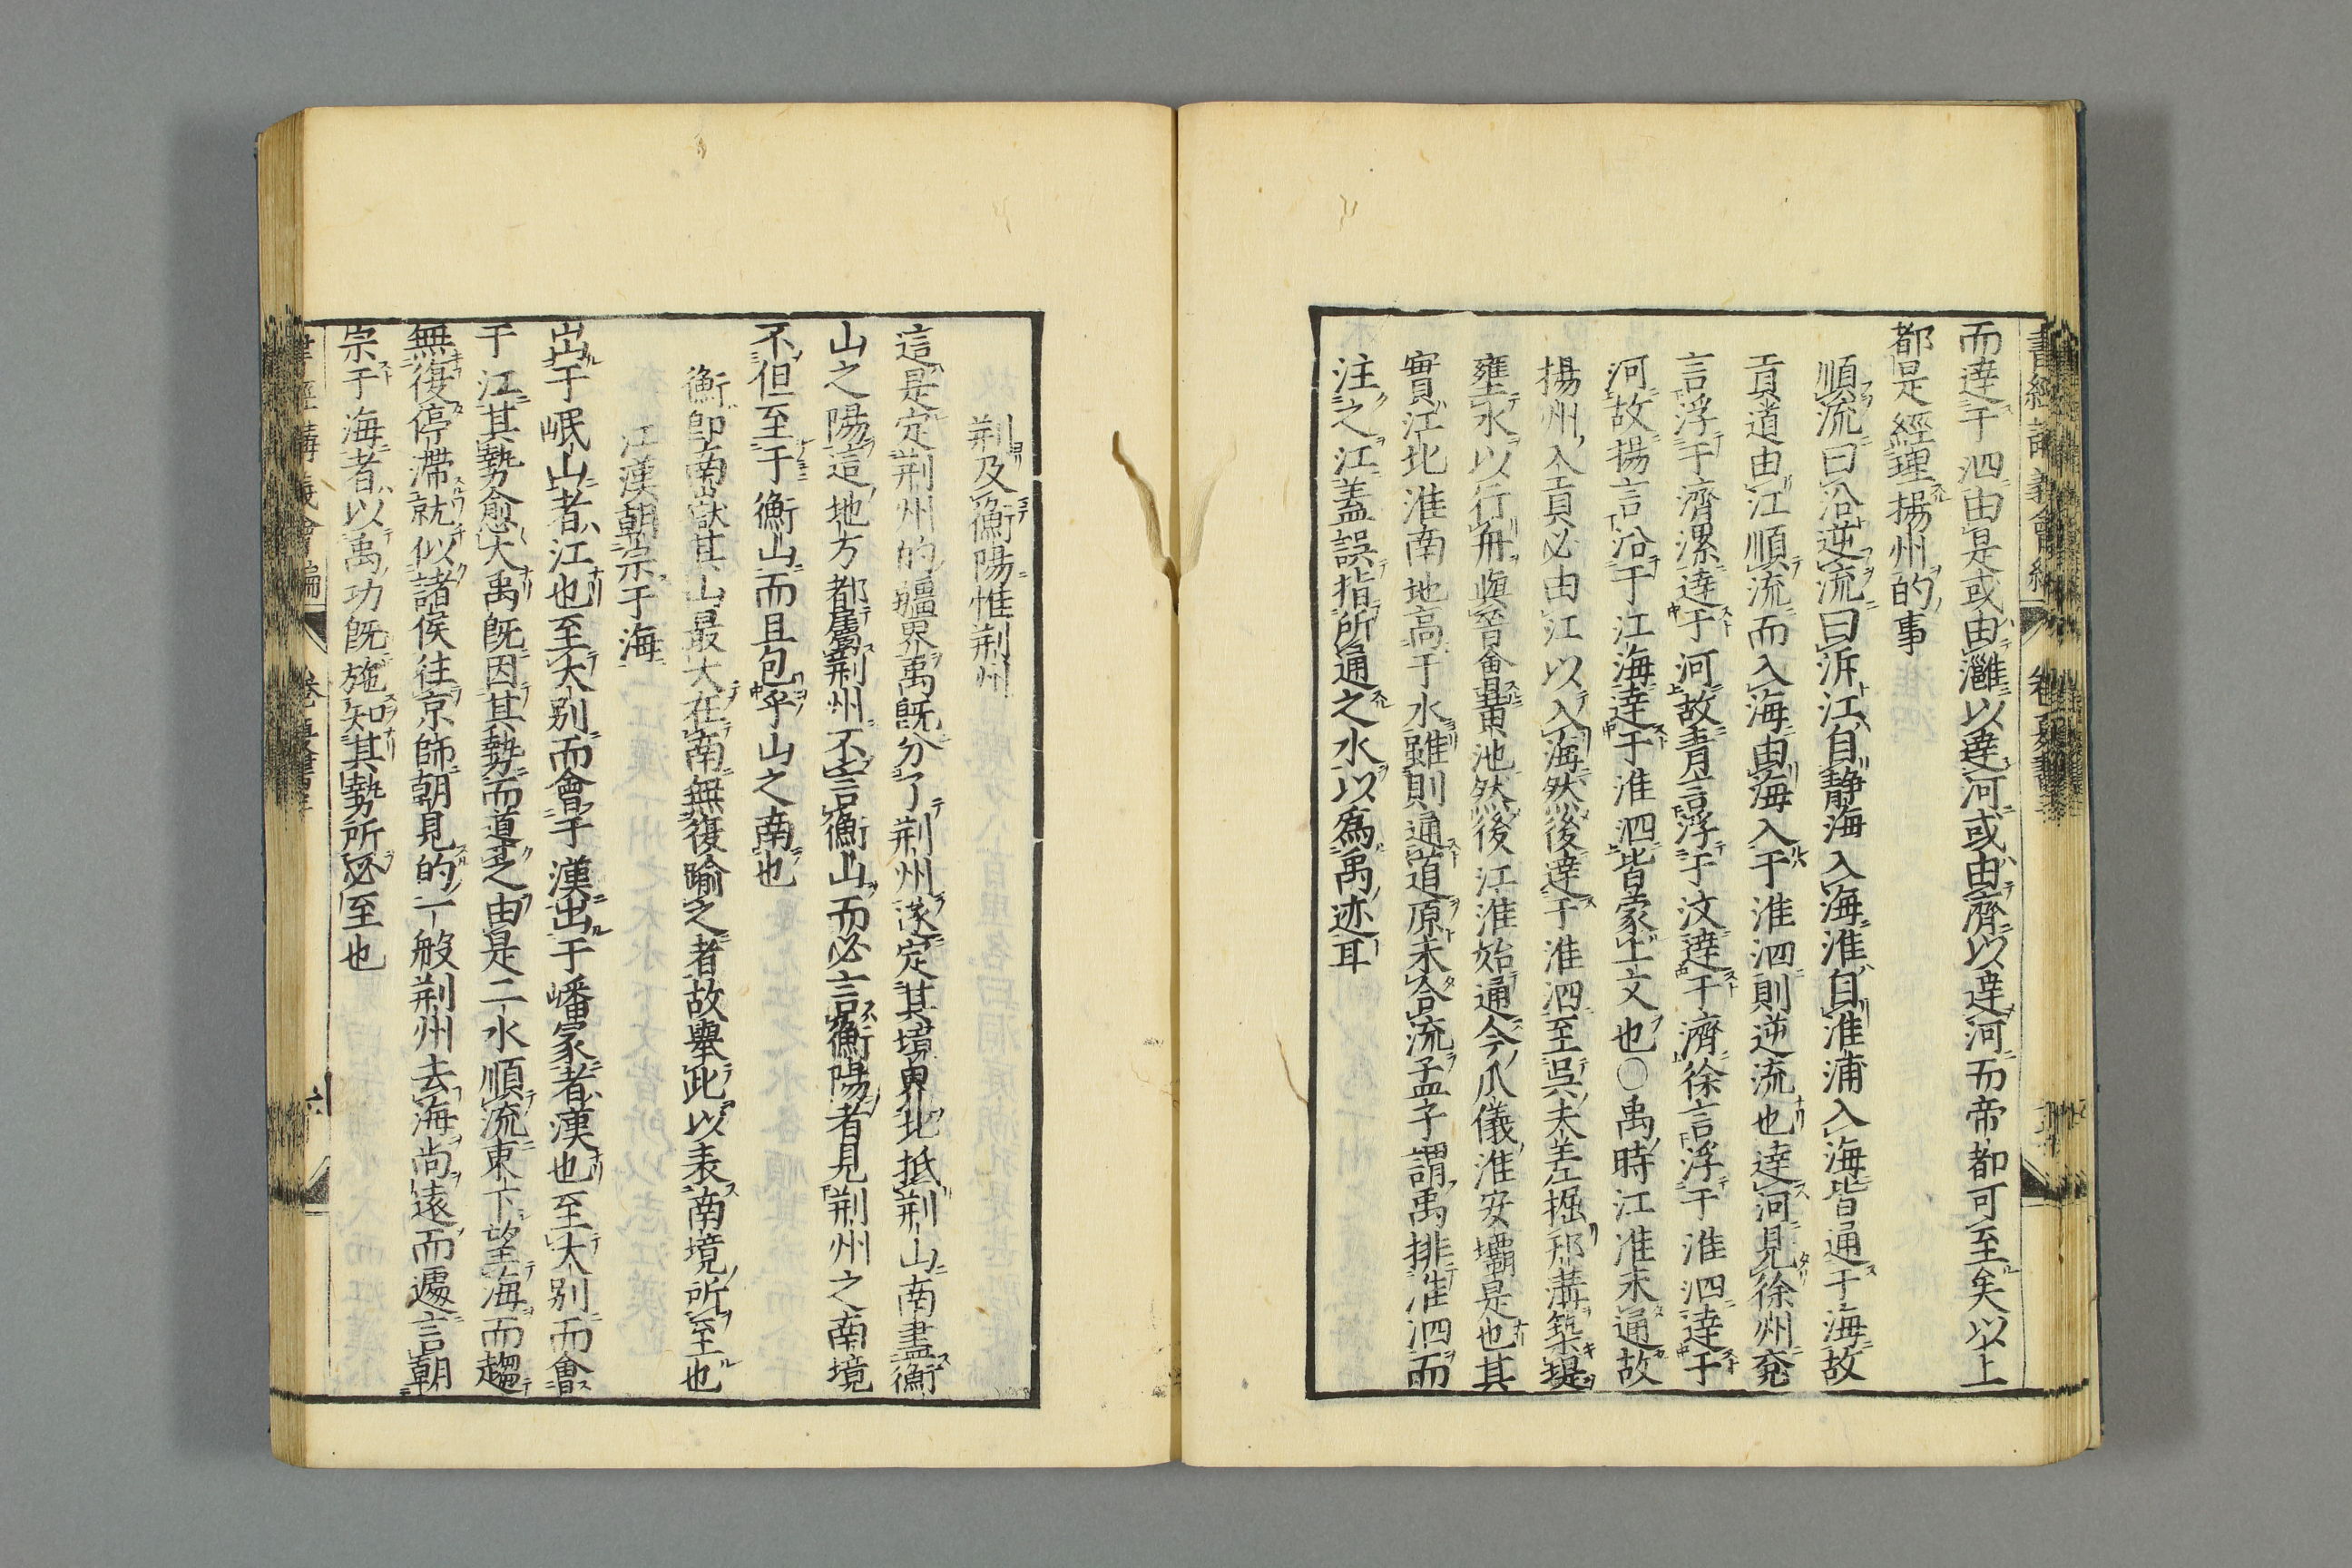 而達于泗由是或由灉以達河或由濟以達河而帝都可至矣以上
都是經理揚州的事
順流曰沿逆流曰泝江自静海入海淮自淮浦入海皆通于海故
貢道由江順流而入海由海入于淮泗則逆流也達河見徐州兗
言浮于濟漯達于河故青言浮于汶達于濟徐言浮于淮泗達于
河故揚言沿于江海達于淮泗皆蒙上文也○禹時江淮未通故
揚州入貢必由江以入海然後達于淮泗至吳夫差掘邗溝築堤
壅水以行舟與晉會黃池然後江淮始通今瓜儀淮安壩是也其
實江北淮南地高于水雖則通道原未合流孟子謂禹排淮泗而
注之江蓋誤指所通之水以爲禹迹耳
荆及衡陽惟荆州
這是定荆州的疆界禹既分了荆州遂定其境界北抵荆山南盡衡
山之陽這地方都屬荆州不言衡山而必言衡陽者見荆州之南境
不但至于衡山而且包乎山之南也
衡卽南嶽其山最大在南無復踰之者故舉此以表南境所至也
江漢朝宗于海
出于岷山者江也至大别而會于漢出于嶓冢者漢也至大别而會
于江其勢愈大禹既因其勢而道之由是二水順流東下望海而趨
無復停滯就似諸侯往京師朝見的一般荆州去海尚遠而遽言朝
宗于海者以禹功既施知其勢所必至也